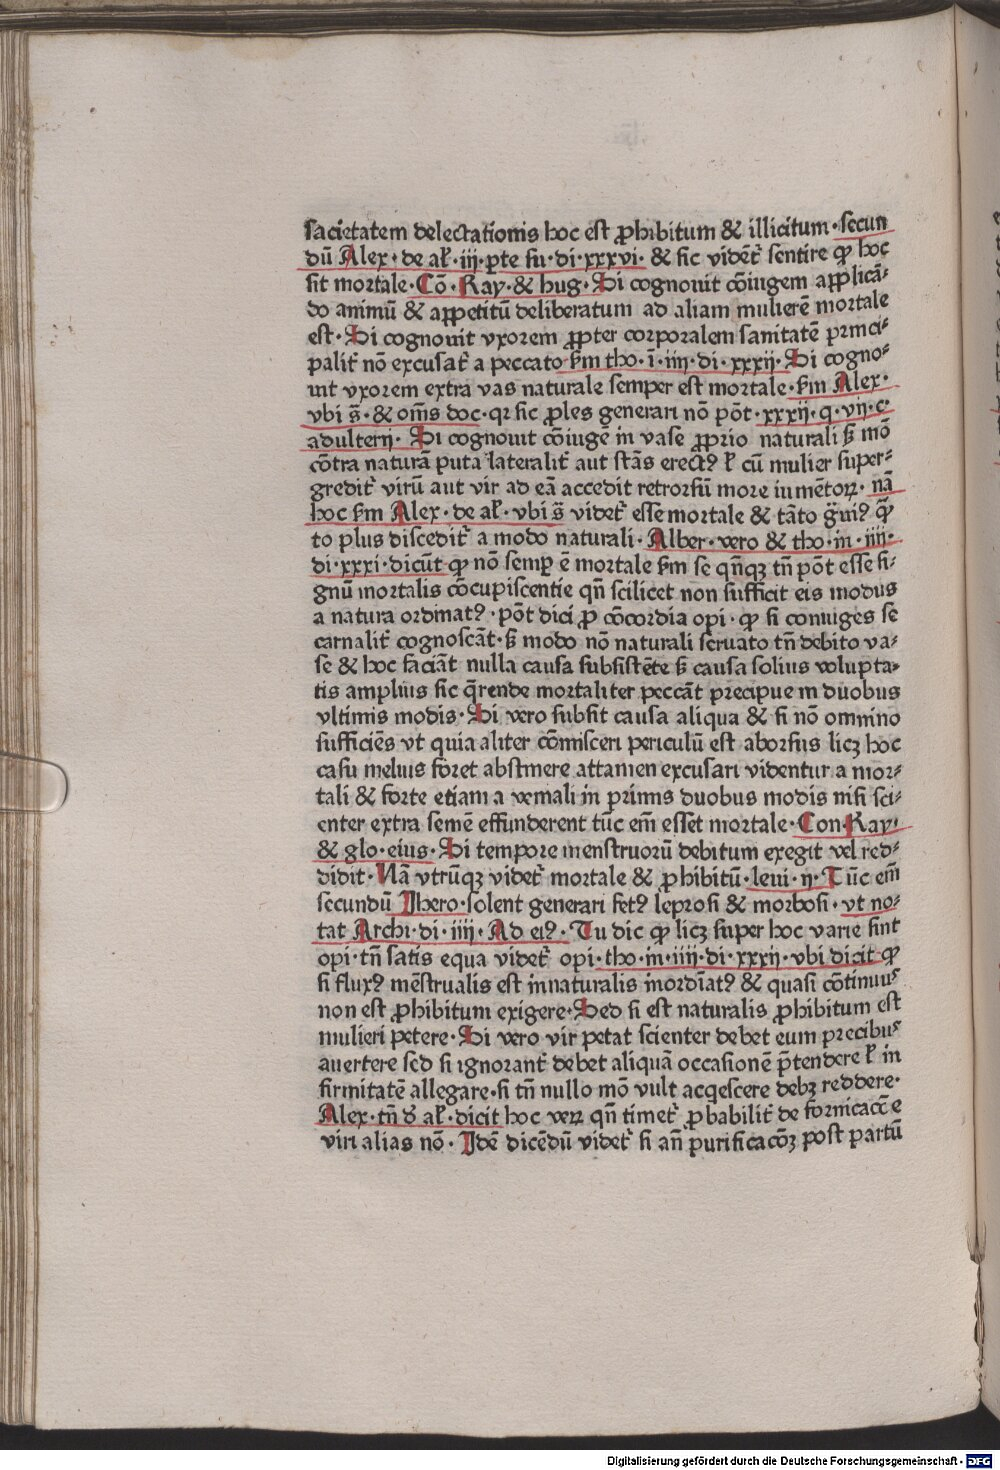 sacietatem delectationis hoc est ꝓhibitum & illicitum·secun
dū Alex·de aƚ·iij·ꝑte su·di·xxxvi· & sic videt᷑ sentire ꝙ hoc
sit mortale·Cō·Ray·& hug·Si cognouit cōiugem applicā⸗
do animū & appetitū deliberatum ad aliam mulierē mortale
est·Si cognouit vxorem ꝓpter corporalem sanitatē princi⸗
palit᷑ nō excusat᷑ a peccato·ẜm tho·ī·iiij·di·xxxij·Si cogno⸗
uit vxorem extra vas naturale semper est mortale·ẜm Alex·
vbi s̄·& om̄s doc·qꝛ sic ꝓles generari nō pōt·xxxij·q·vij·c·
adulterij·Si cognouit cōiugē in vase ꝓprio naturali ß mō
cōtra naturā puta lateralit᷑ aut stās erectꝰ ƚ cū mulier super⸗
gredit᷑ virū aut vir ad eā accedit retrorsū more iumētoꝝ·nā
hoc ẜm Alex·de aƚ·vbi s̄ videt᷑ esse mortale & tāto g̈uiꝰ q̄ͣ
to plus discedit᷑ a modo naturali·Alber·vero & tho·in·iiij·
di·xxxi·dicūt ꝙ nō semꝑ ē mortale ẜm se qn̄qꝫ tn̄ pōt esse si⸗
gnū mortalis cōcupiscentie qn̄ scilicet non sufficit eis modus
a natura ordinatꝰ·pōt dici ꝓ cōcordia opi·ꝙ si coniuges se
carnalit᷑ cognoscāt·ß modo nō naturali seruato tn̄ debito va⸗
se & hoc faciāt nulla causa subsistēte ß causa solius volupta⸗
tis amplius sic q̄rende mortaliter peccāt precipue in duobus
vltimis modis·Si vero subsit causa aliqua & si nō omnino
sufficiēs vt quia aliter cōmisceri periculū est aborsus licꝫ hoc
casu melius foret abstinere attamen excusari videntur a mor⸗
tali & forte etiam a veniali in primis duobus modis nisi sci⸗
enter extra semē effunderent tūc em̄ esset mortale·Con·Ray·
& glo·eius·Si tempore menstruorū debitum exegit vel red⸗
didit·Nā vtrūqꝫ videt᷑ mortale & ꝓhibitū·leui·ij·Tūc em̄
secundū Jhero·solent generari fetꝰ leprosi & morbosi·vt no⸗
tat Archi·di·iiij·Ad eiꝰ·Tu dic ꝙ licꝫ super hoc varie sint
opi·tn̄ satis equa videt᷑ opi·tho·in·iiij·di·xxxij·vbi dicit ꝙ
si fluxꝰ mēstrualis est innaturalis inordīatꝰ & quasi cōtinuuꝰ
non est ꝓhibitum exigere·Sed si est naturalis ꝓhibitum est
mulieri petere·Si vero vir petat scienter debet eum precibuꝰ
auertere sed si ignorant᷑ debet aliquā occasionē p̄tendere ƚ in
firmitatē allegare·si tn̄ nullo mō vult acq̇escere debꝫ reddere·
Alex·tn̄ ꝺ̄ aƚ·dicit hoc veꝝ qn̄ timet᷑ ꝓbabilit᷑ de fornicacōe
viri alias nō·Jdē dicēdū videt᷑ si an̄ purificacōꝫ post partū
Digitalisierung gefördert durch die Deutsche Forschungsgemeinschaft - DFG